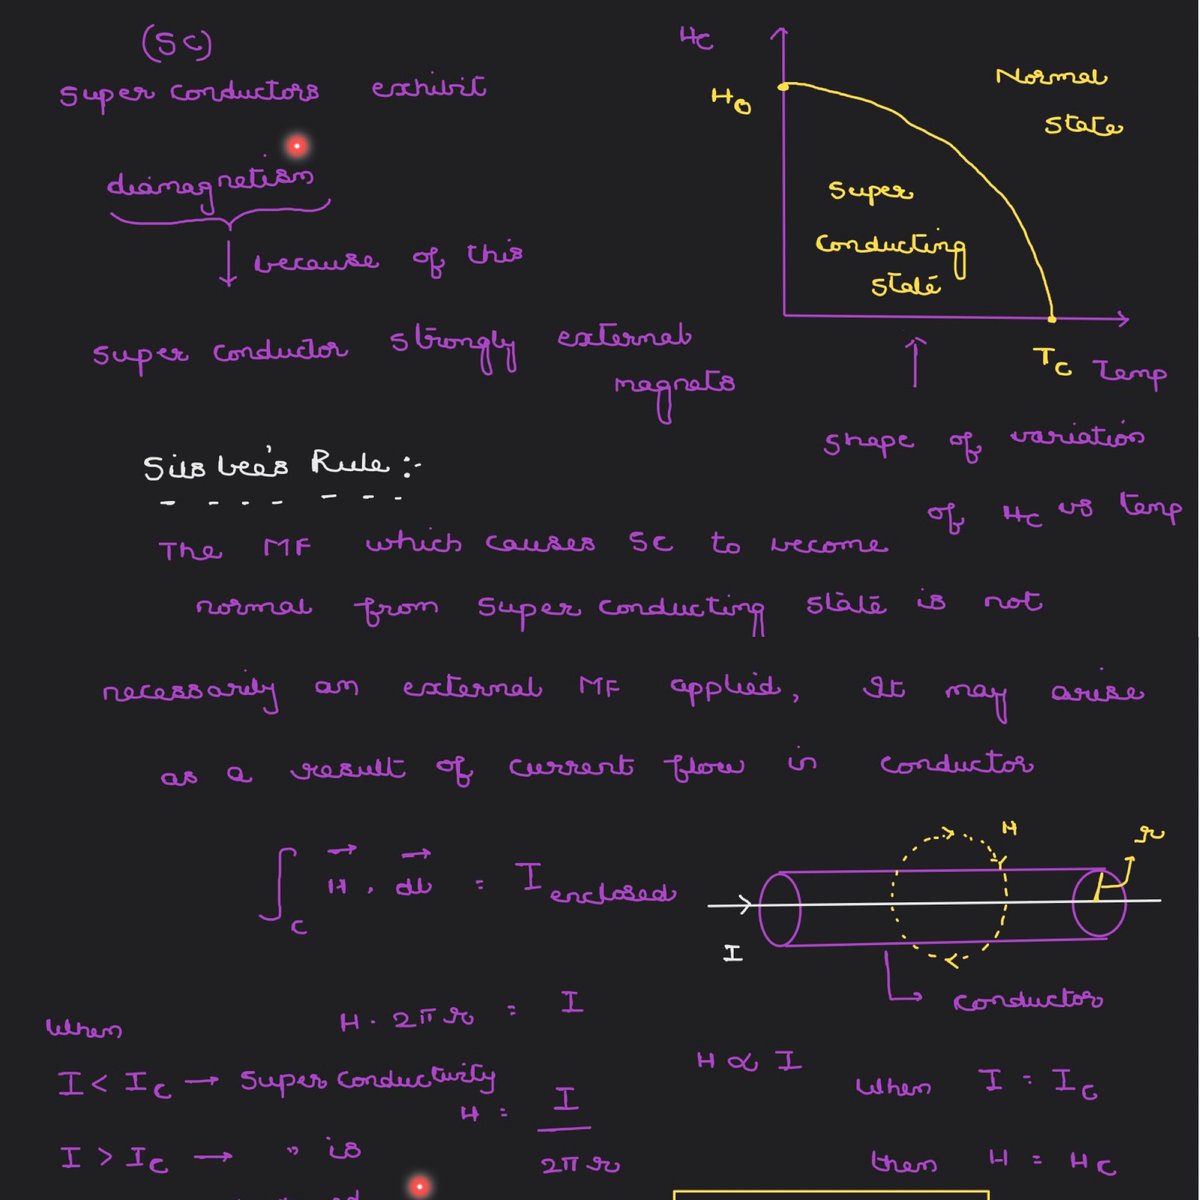 (SC)
Super conductors exhibit
diamagnetism
because of this
super conductor strongly external
magnets
HC
H0
Normal
State
Super
Conducting
State
TC Temp
shape of variation
of HC vs temp
Silsbee's Rule :-
The MF which causes SC to become
normal from super conducting state is not
necessarily an external MF applied, It may arise
as a result of current flow in conductor
∫C H⃗ . dl⃗ = I enclosed
H
r
I
conductor
H . 2πr = I
H = I / 2πr
When
I < IC → Super conductivity
I > IC → " is
H ∝ I
When I = IC
then H = HC